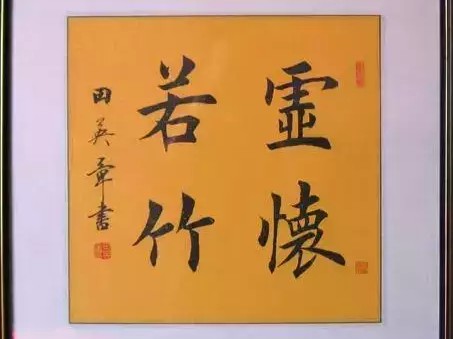 虛懷
若竹
田英章書